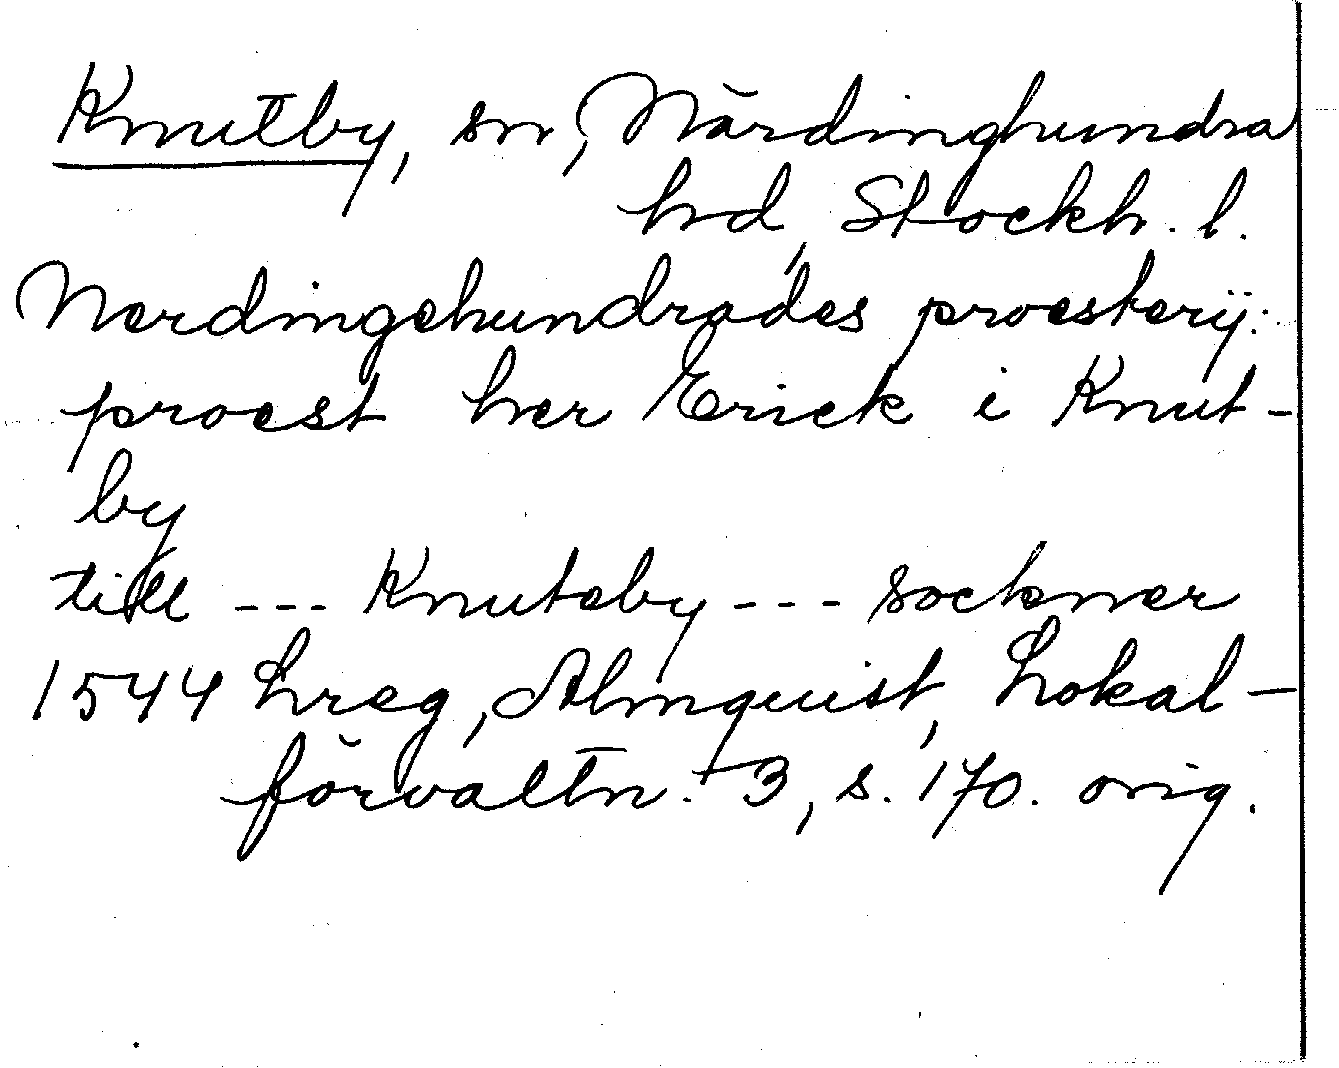 Knutby, sn, Närdinghundra
hd, Stockh. l.
Nerdingehundrades proesterij:
proest her Erick i Knut-
by
till --- Knuteby --- sockner
1544 Lreg, Almquist, Lokal-
förvaltn. 3, s. 170. orig.